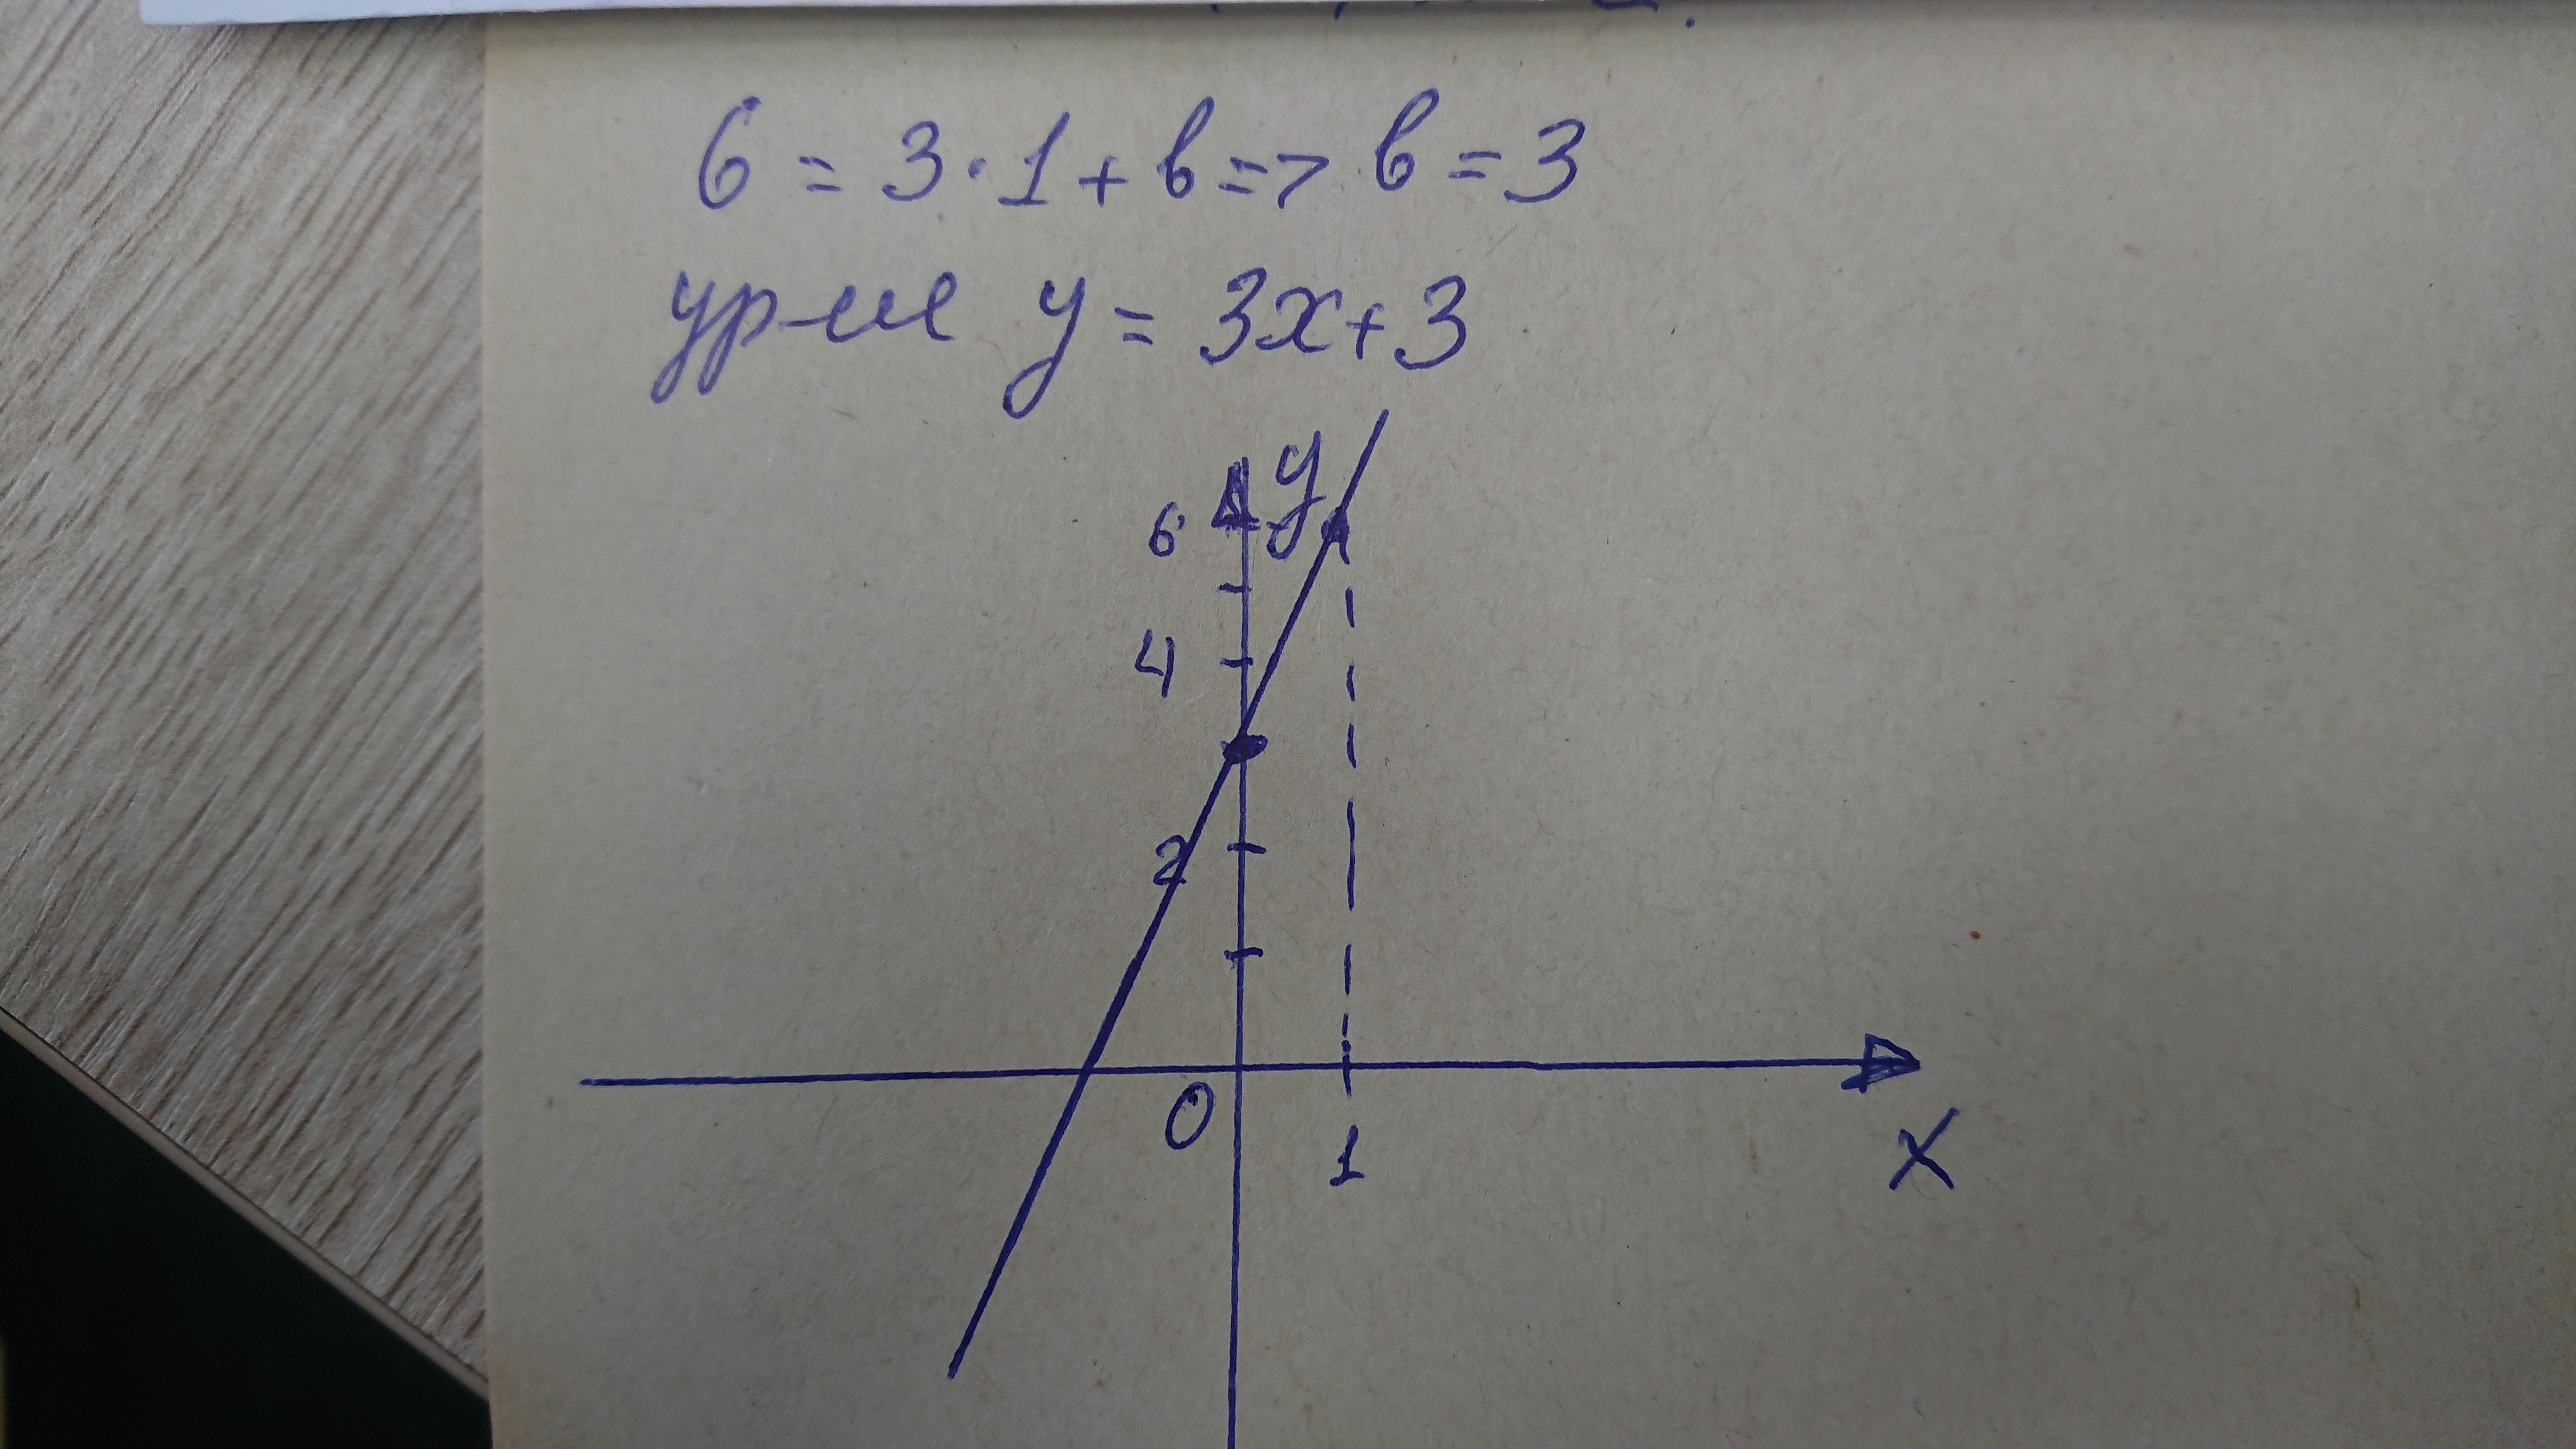 6 = 3·1 + в => в = 3
ур-ие y = 3x+3
y
6
4
2
0
1
x